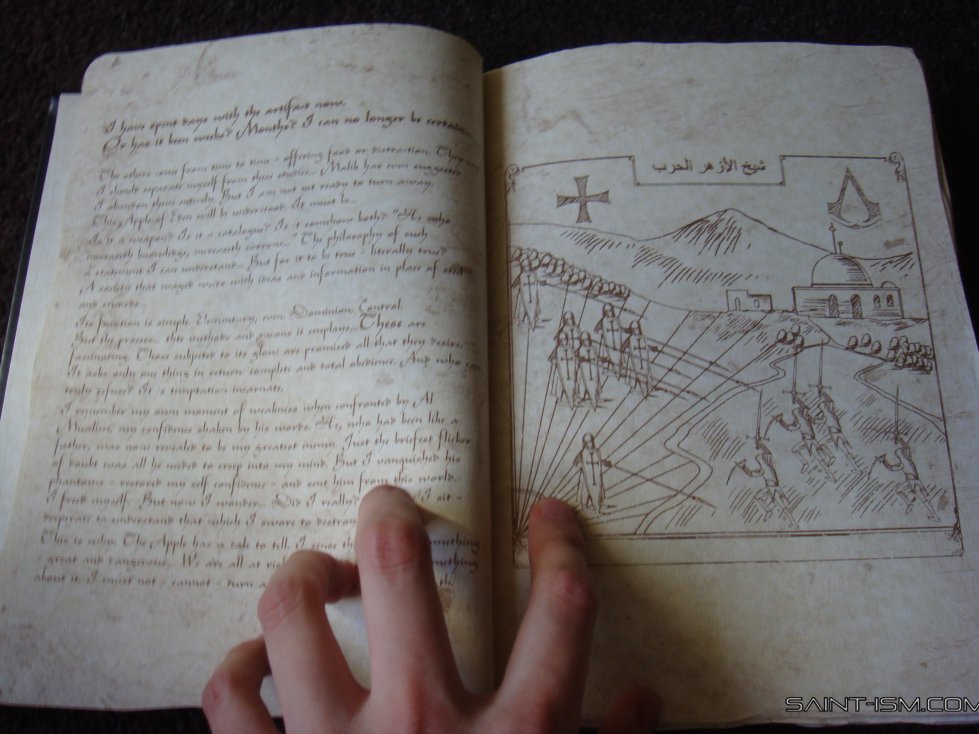 I have spent days with the artifact now.
Or has it been weeks? Months? I can no longer be certain...
The others come from time to time - offering food or distraction. They
I should separate myself from these studies... Malik has even suggested
I abandon them entirely. But I am not yet ready to turn away.
This Apple of Eden will be understood. It must be...
Is it a weapon? Is it a catalogue? Is it somehow both? "He who
increaseth knowledge, increaseth sorrow..." The philosophy of such
a statement I can understand... But for it to be true - literally true?
A reality that waged wars with ideas and information in place of
and swords...
Its function is simple. Elementary, even. Dominion. Control.
But the process... the methods and means it employs... These are
fascinating. Those subjected to its glow are promised all that they desire.
It asks only one thing in return: complete and total obedience. And who can
truly refuse? It is temptation incarnate.
I remember my own moment of weakness when confronted by Al
Mualim, my confidence shaken by his words. He, who had been like a
father, was now revealed to be my greatest enemy. Just the briefest flicker
of doubt was all he needed to creep into my mind. But I vanquished his
phantoms - restored my self confidence - and sent him from this world.
I freed myself. But now I wonder... Did I really I sit -
desperate to understand that which I swore to destroy
This is why: The Apple has a tale to tell. I sense the something
great and dangerous... We are all at something
about it. I must not - cannot - turn
شيخ الأزهر الحرب
SAINT-ISM.COM